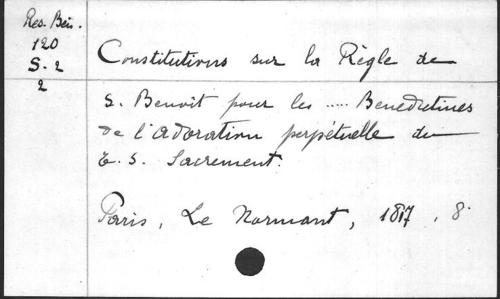 Res. Bén.
120
S. 2
2
Constitutions sur la Règle de
S. Benoit pour les ..... Benedictines
de l'adoration perpétuelle du
T. S. Sacrement.
Paris, Le Normant, 1817, 8°